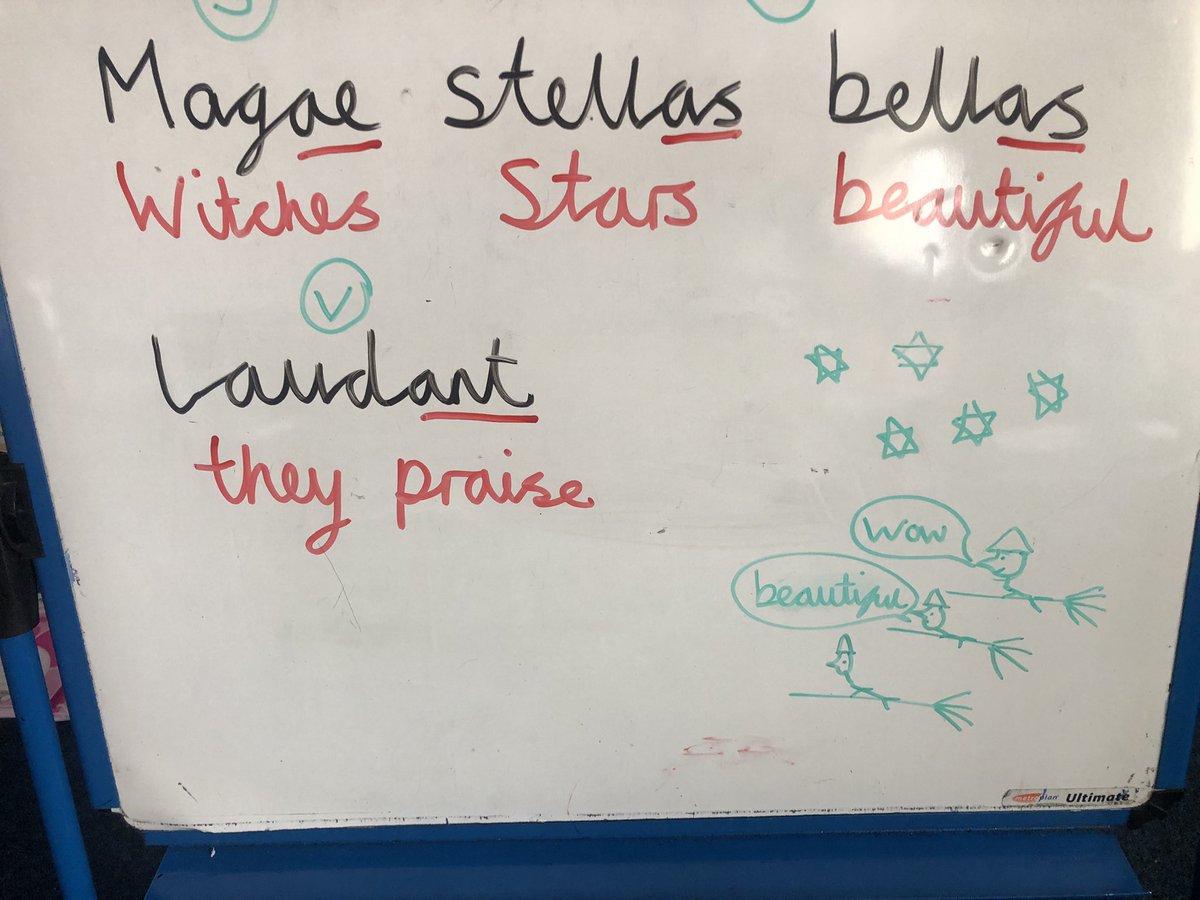 Magae stellas bellas
Witches Stars beautiful
V
Laudant
they praise
wow
beautiful
metroplan Ultimate